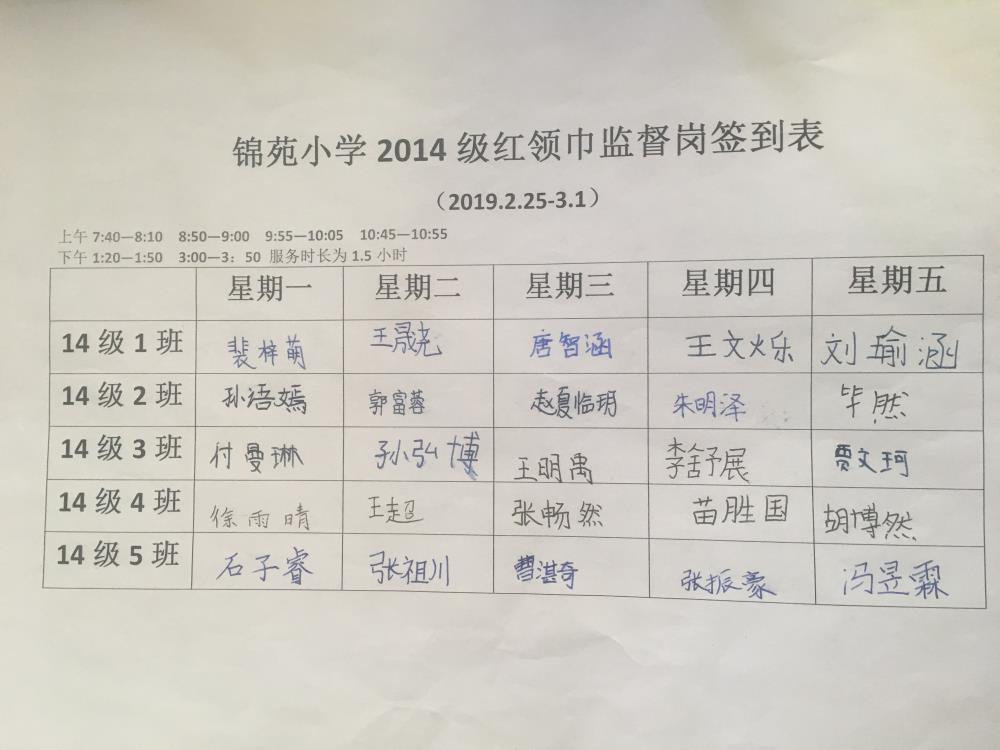 锦苑小学2014级红领巾监督岗签到表
（2019.2.25-3.1）
上午 7:40—8:10 8:50—9:00 9:55—10:05 10:45—10:55
下午 1:20—1:50 3:00—3：50 服务时长为 1.5 小时
星期一 星期二 星期三 星期四 星期五
14 级 1 班 裴梓萌 王晟尧 唐智涵 王文烁 刘瑜涵
14 级 2 班 孙语嫣 郭富蓉 赵夏临玥 朱明泽 毕然
14 级 3 班 付曼琳 孙弘博 王明禹 李舒展 贾文珂
14 级 4 班 徐雨晴 王超 张畅然 苗胜国 胡博然
14 级 5 班 石子睿 张祖川 曹湛奇 张振豪 冯昱霖